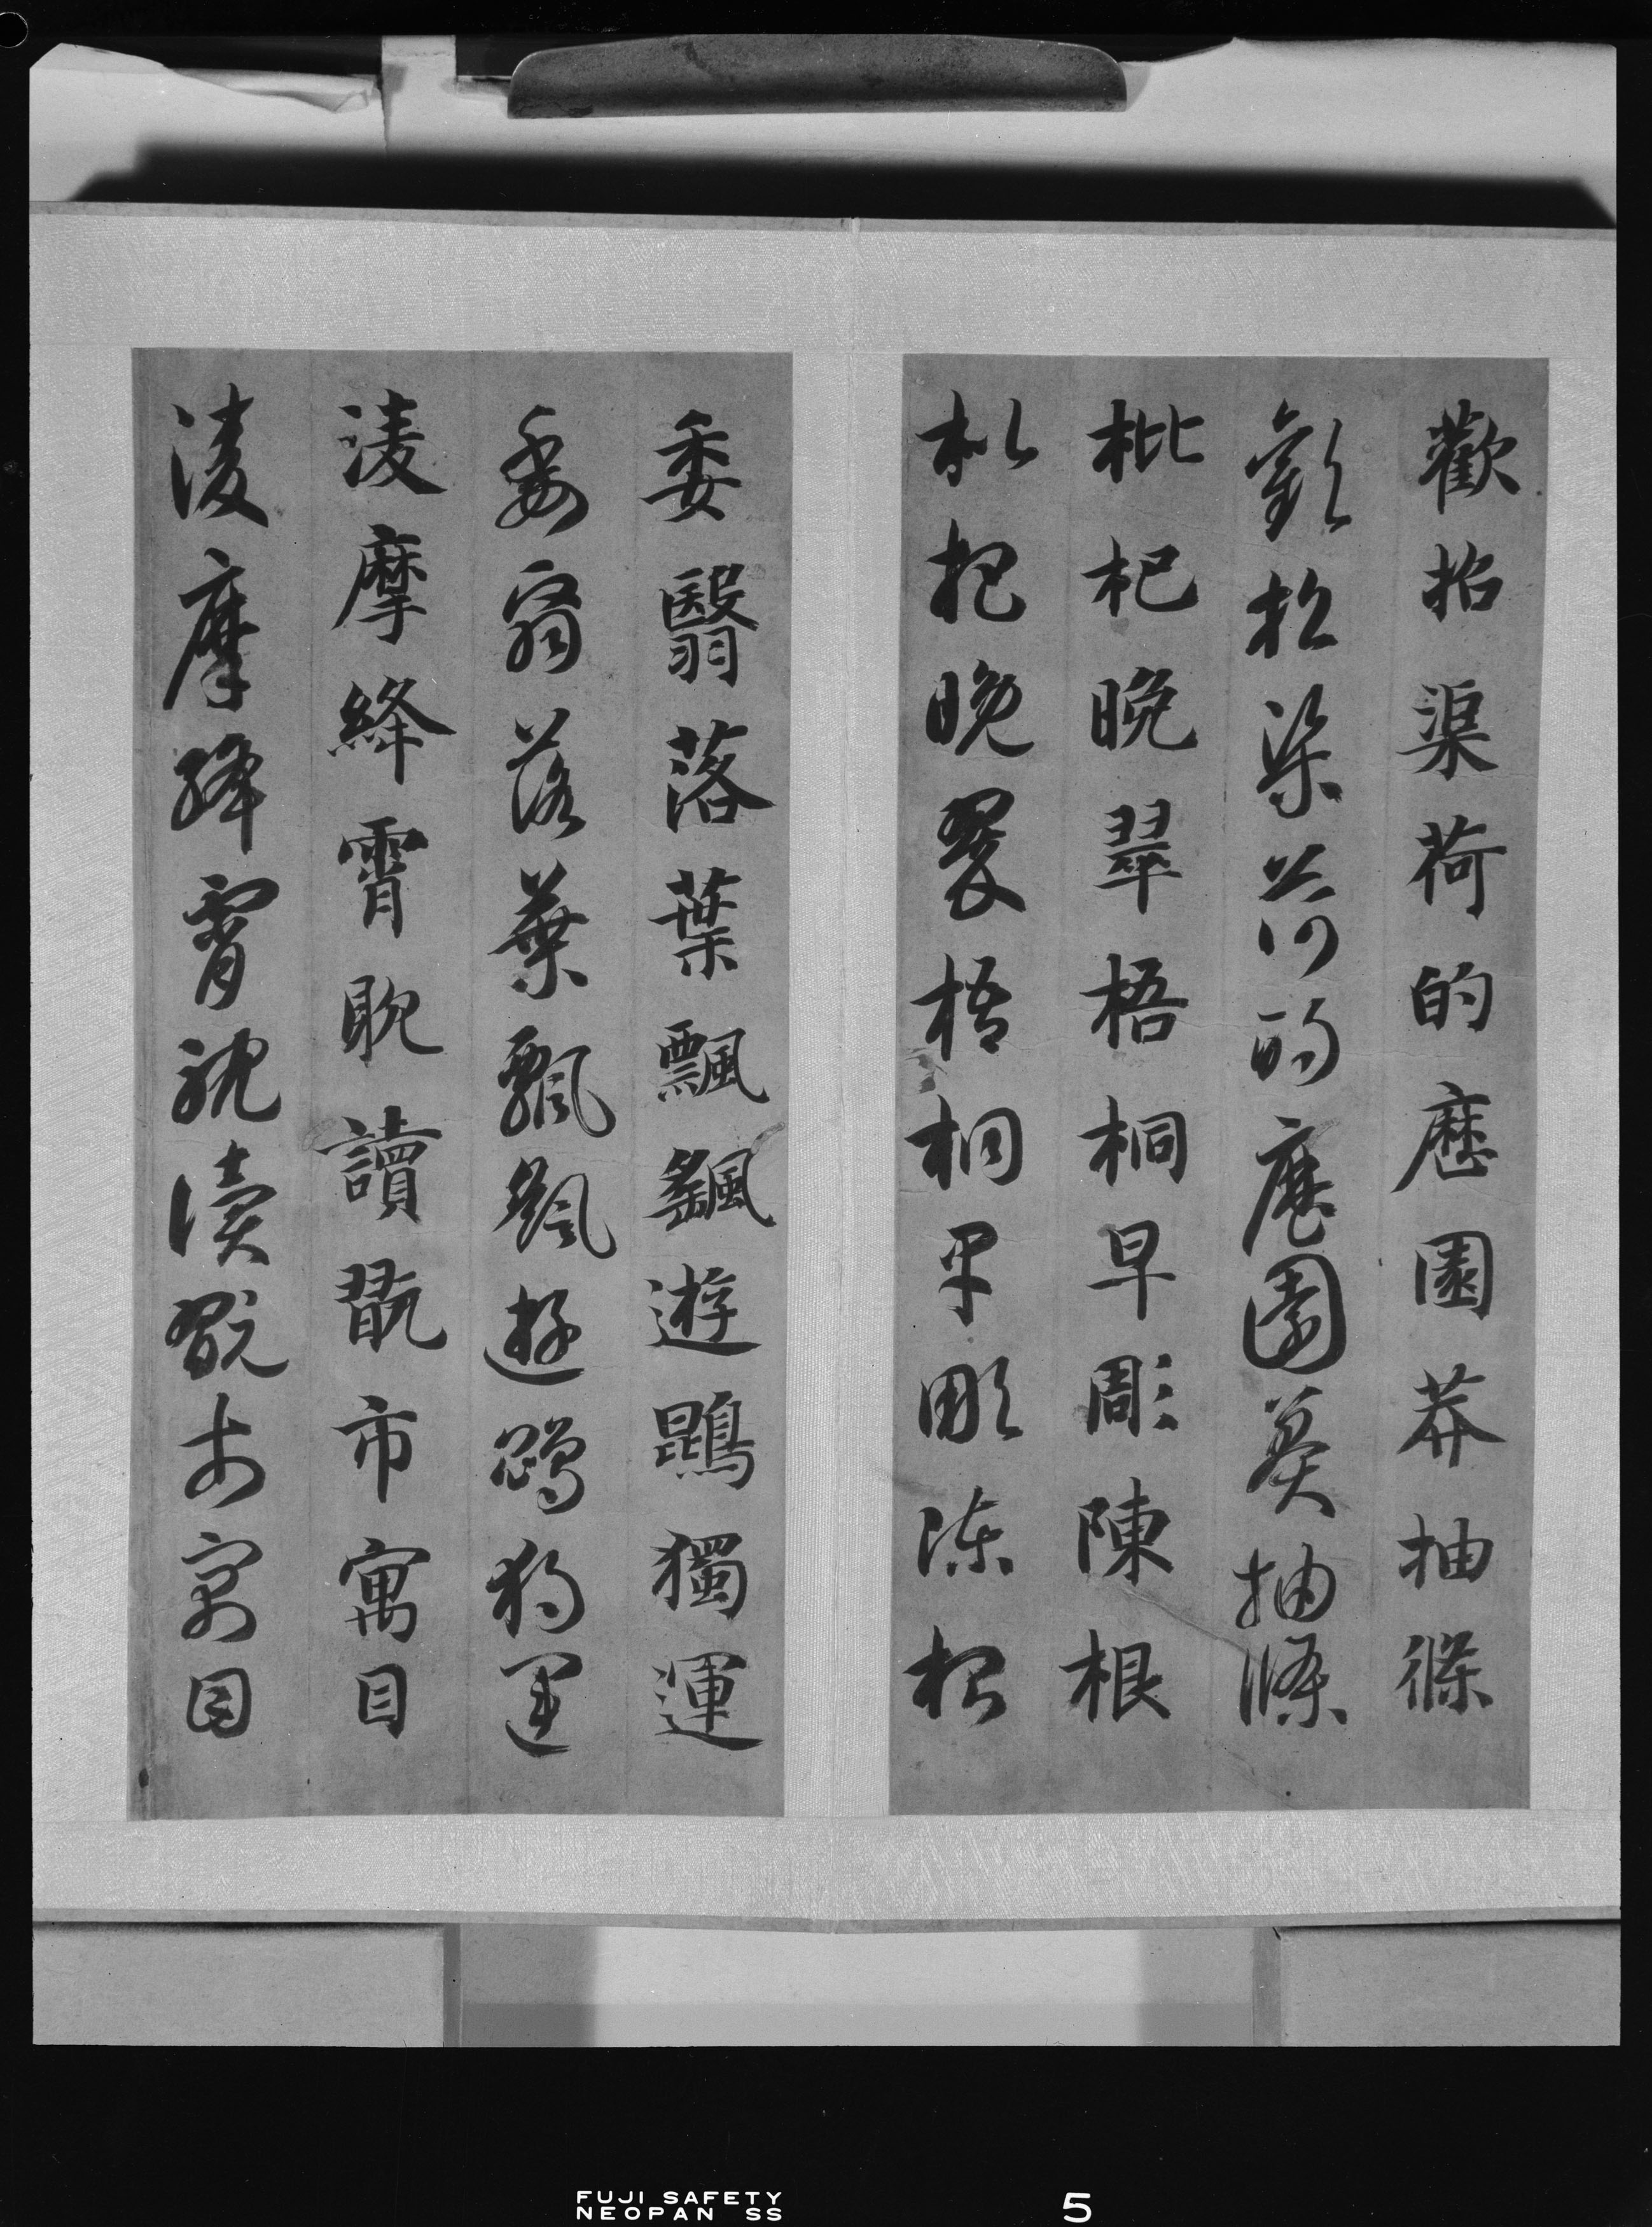 歡招渠荷的歷園莽抽條
歡招渠荷的歷園莽抽條
枇杷晚翠梧桐早彫陳根
枇杷晚翠梧桐早彫陳根
委翳落葉飄颻遊鵾獨運
委翳落葉飄颻遊鵾獨運
淩摩絳霄耽讀翫市寓目
淩摩絳霄耽讀翫市寓目
FUJI SAFETY
NEOPAN SS
5